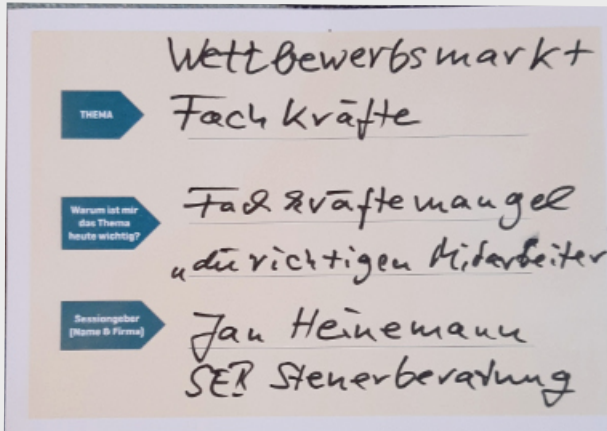 Wettbewerbsmarkt
THEMA
Fachkräfte
Warum ist mir
das Thema
heute wichtig?
Fachkräftemangel
„die richtigen Mitarbeiter
Sessiongeber
(Name & Firma)
Jan Heinemann
SER Steuerberatung